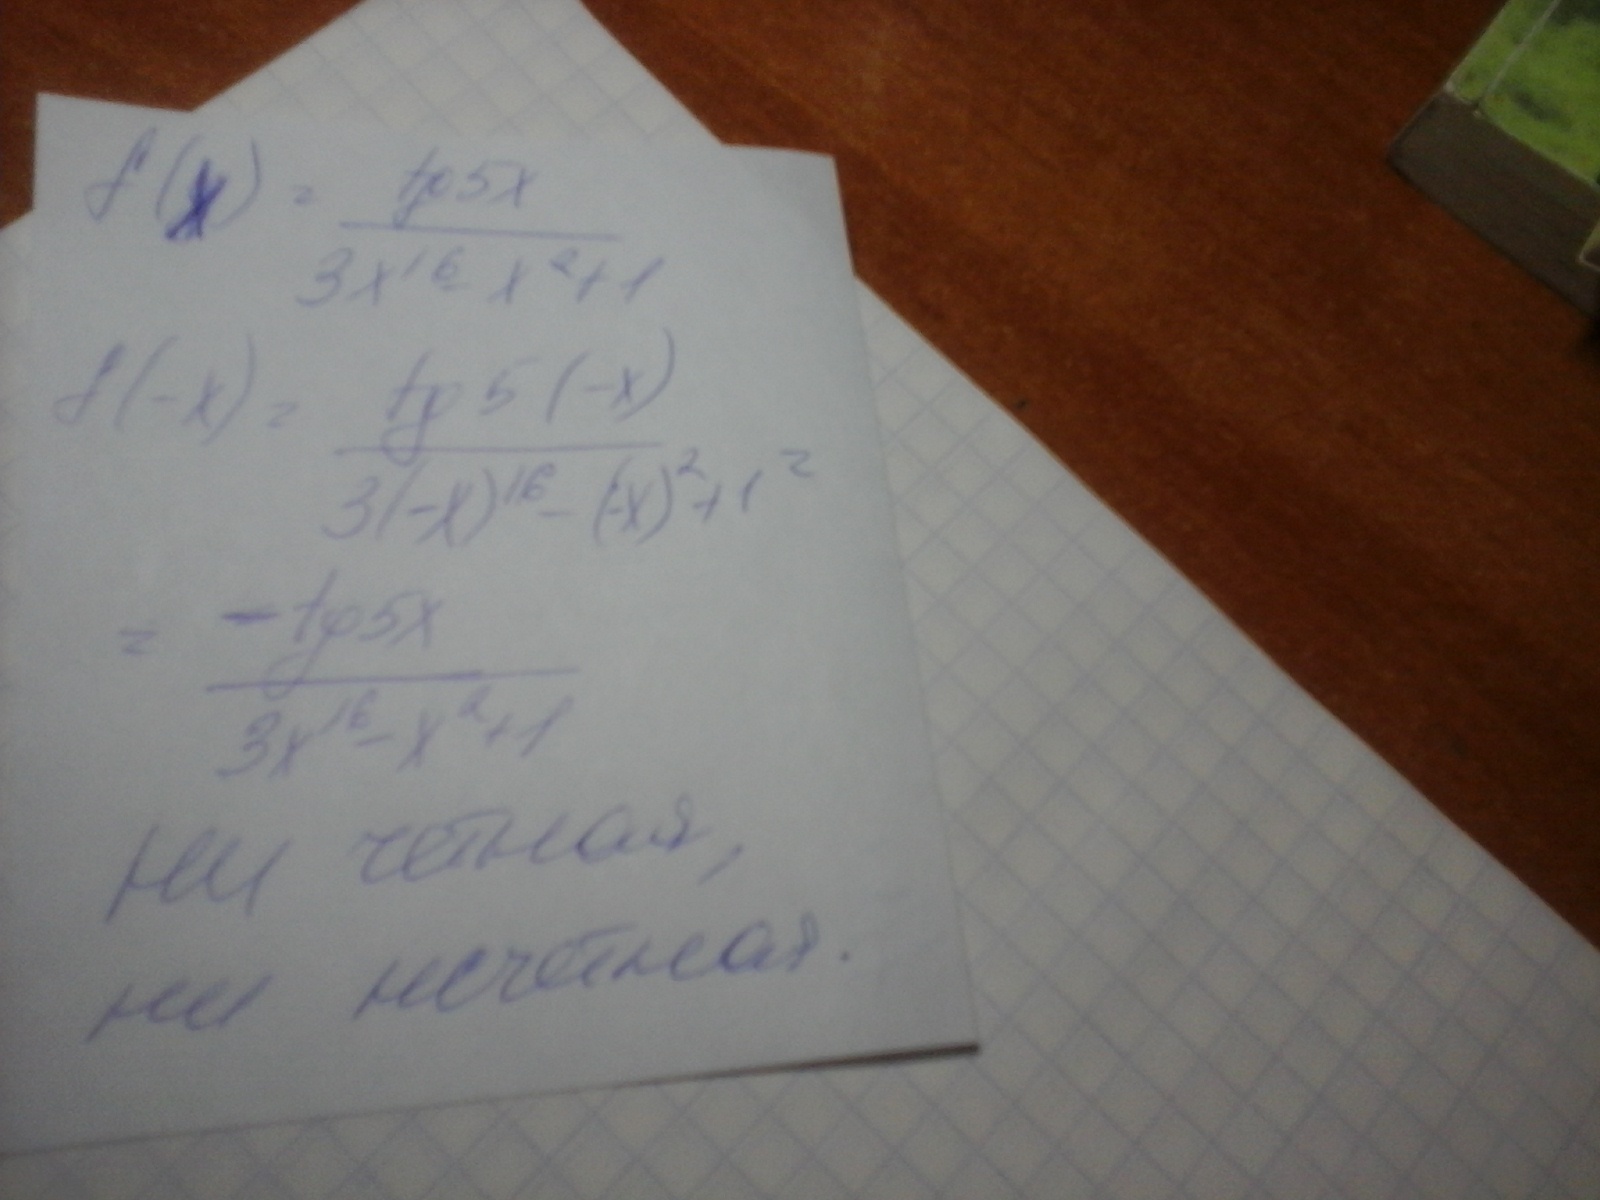 f(x) = tg5x / 3x¹⁶-x²+1
f(-x) = tg5(-x) / 3(-x)¹⁶-(-x)²+1 =
= -tg5x / 3x¹⁶-x²+1
ни чётная,
ни нечётная.